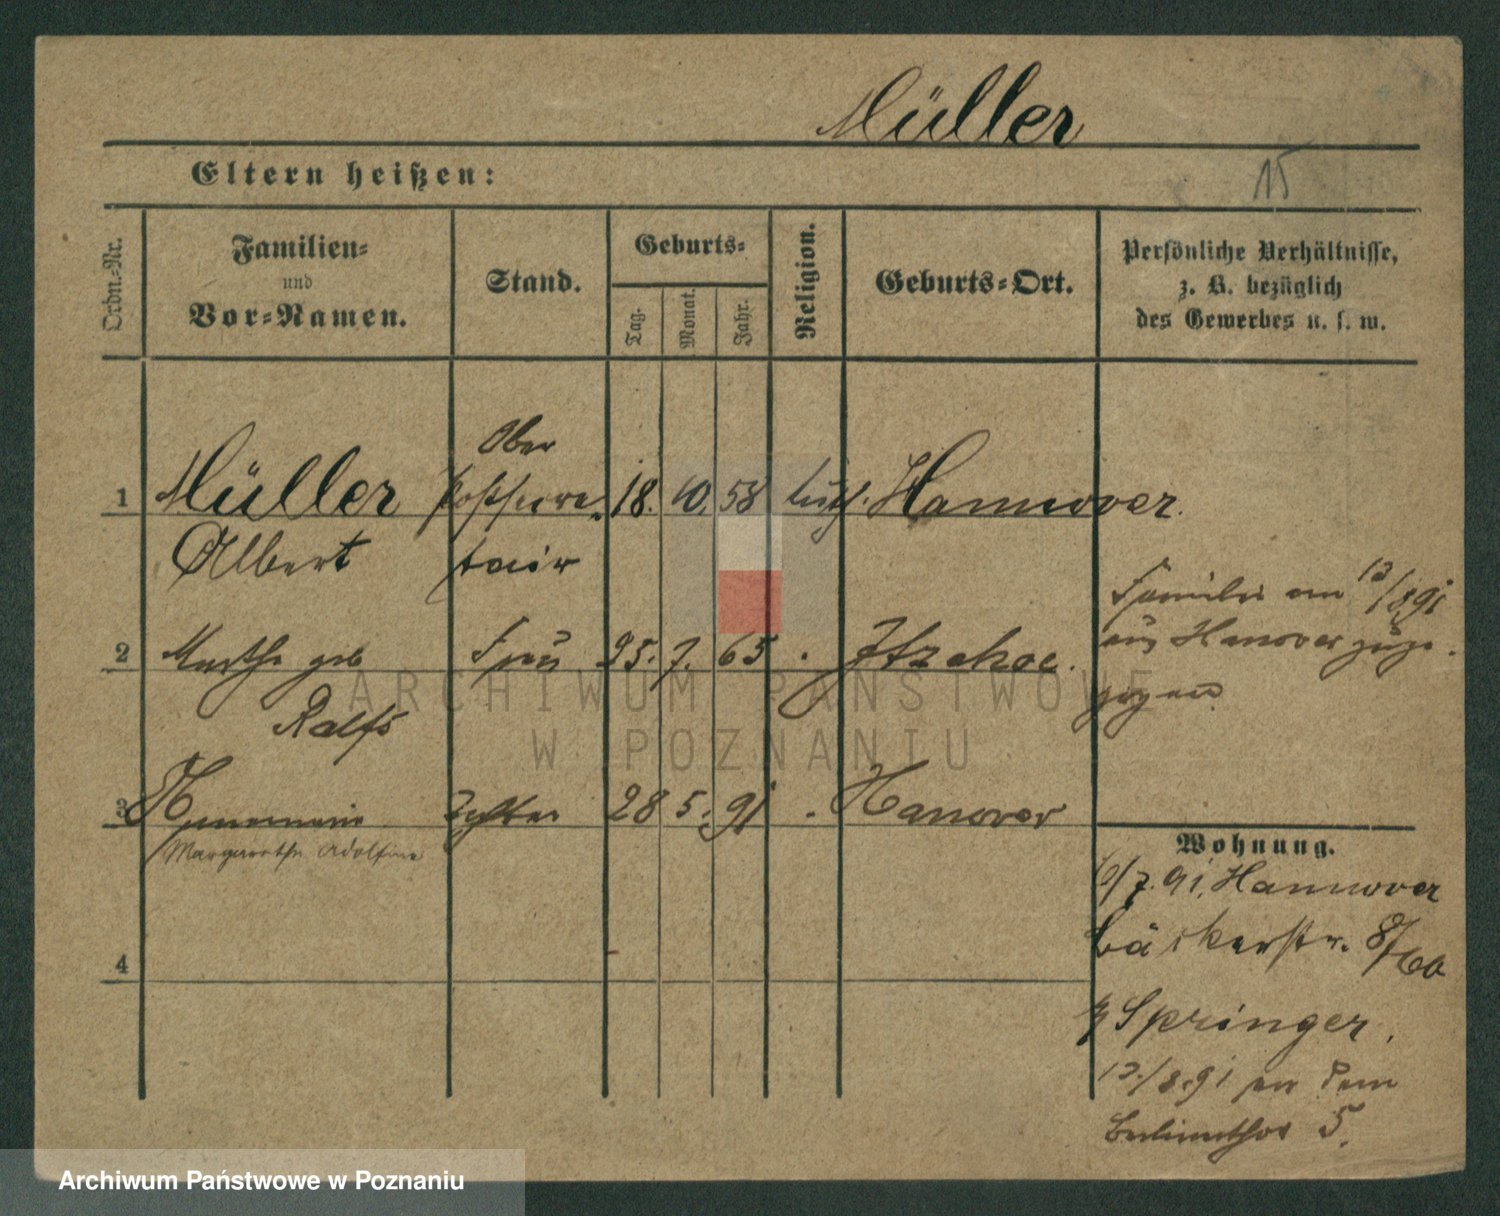 Müller
Eltern heißen:
15
Ordn.-Nr.
Familien-
und
Vor-Namen.
Stand.
Geburts-
Tag.
Monat.
Jahr.
Religion.
Geburts-Ort.
Persönliche Verhältnisse,
z. B. bezüglich
des Gewerbes u. s. w.
Ober
1 Müller Postsecre- 18. 10. 58 luth. Hannover.
Albert tair
Familie am 13/8 91
2 Martha geb Frau 25. 7. 65 Itzehoe.
aus Hanover zuge-
zogen
Ralfs
3 Annemarie Tochter 28 5. 91 Hanover
Margarethe Adolfine
Wohnung.
7. 91. Hannover
Bäckerstr. 8/
4
Springer.
13/8. 91 Vom
Berlinerthor 5.
ARCHIWUM PAŃSTWOWE
W POZNANIU
Archiwum Państwowe w Poznaniu